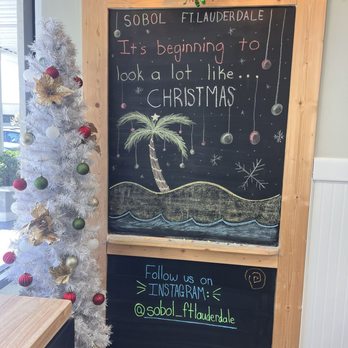 SOBOL FT.LAUDERDALE
It's beginning to
look a lot like...
CHRISTMAS
Follow us on
INSTAGRAM:
@sobol_ftlauderdale